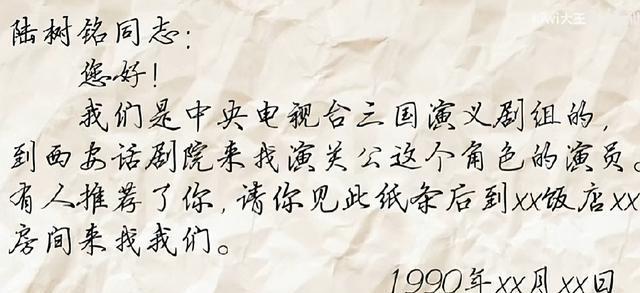 wi大王
陆树铭同志：
您好！
我们是中央电视台三国演义剧组的，
到西安话剧院来找演关公这个角色的演员。
有人推荐了你，请你见此纸条后到xx饭店xx
房间来找我们。
1990年xx月xx日